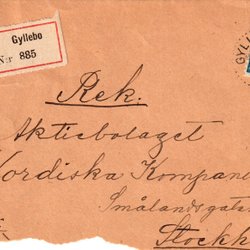 Gyllebo
N:r 885
GYLL
Rek.
Aktiebolaget
Nordiska Kompani
Smålandsgata
Stockh